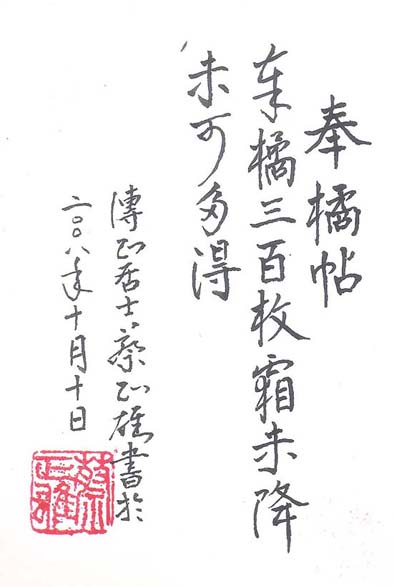 奉橘帖
奉橘三百枚霜未降
未可多得
傳正居士蔡正雄書於
二〇〇八年十月十日
蔡正雄